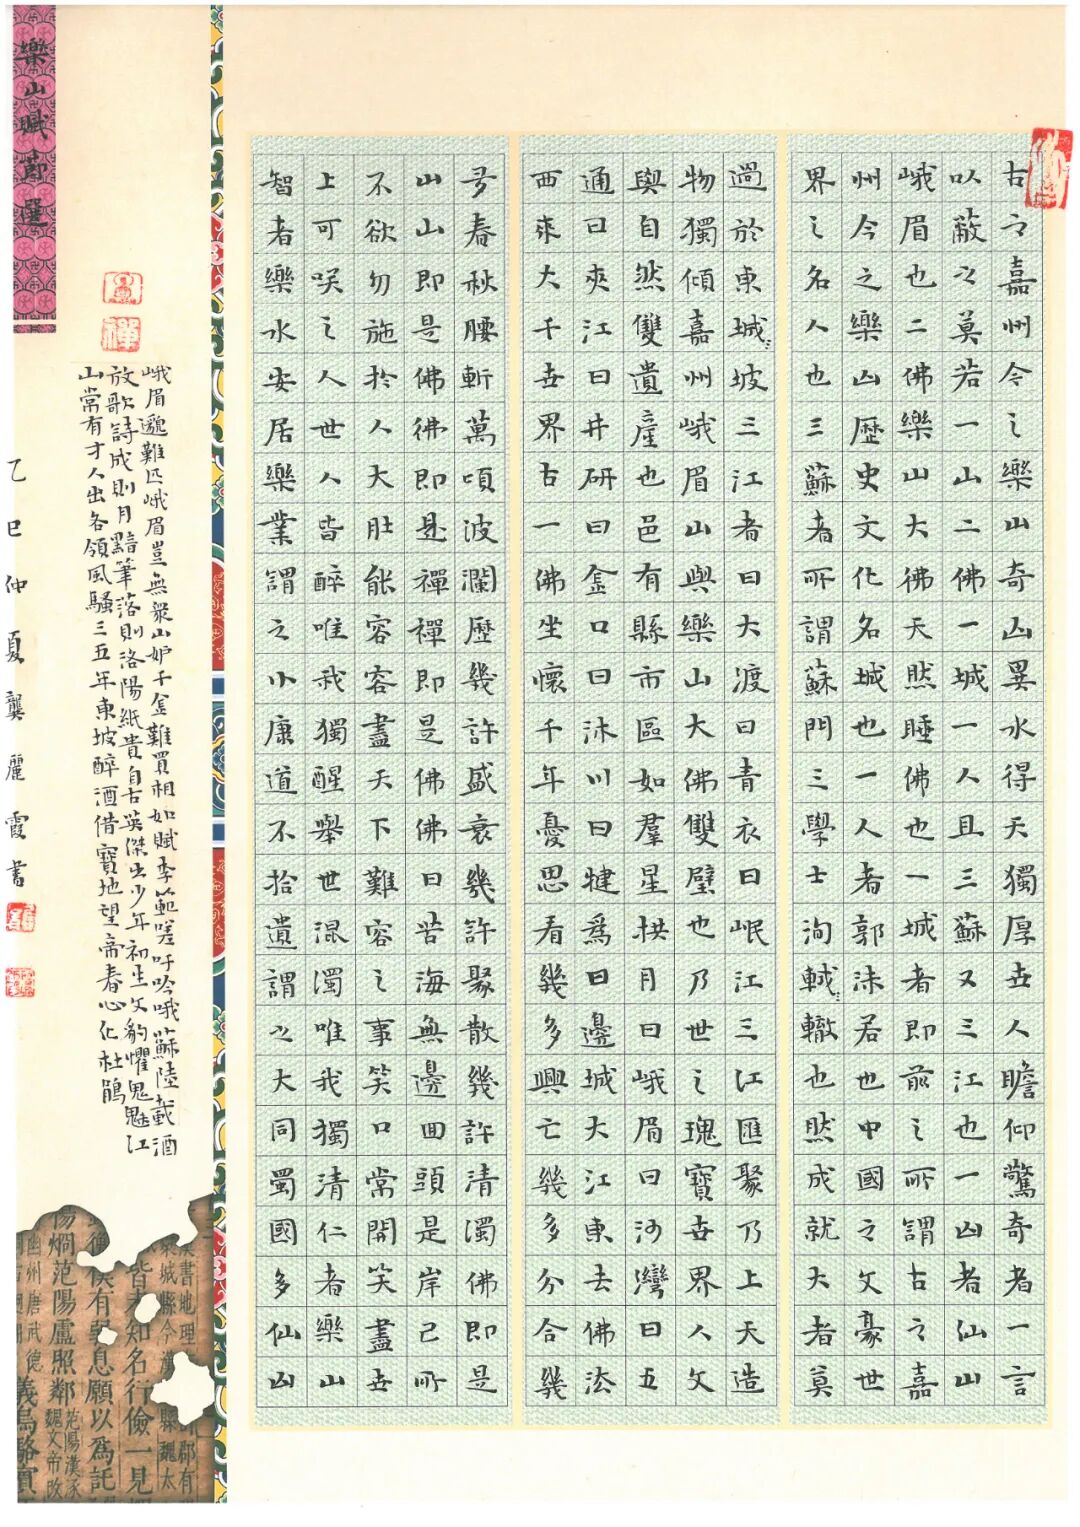 古之嘉州今之樂山奇山異水得天獨厚世人瞻仰驚奇者一言
以蔽之莫若一山二佛一城一人且三蘇又三江也一山者仙山
峨眉也二佛樂山大佛天然睡佛也一城者即前之所謂古之嘉
州今之樂山歷史文化名城也一人者郭沫若也中國之文豪世
界之名人也三蘇者所謂蘇門三學士洵軾轍也然成就大者莫
過於東城坡三江者曰大渡曰青衣曰岷江三江匯聚乃上天造
物獨傾嘉州峨眉山與樂山大佛雙璧也乃世之瑰寶世界人文
與自然雙遺產也邑有縣市區如羣星拱月曰峨眉曰沙灣曰五
通曰夾江曰井研曰金口曰沐川曰犍爲曰邊城大江東去佛法
西來大千世界古一佛坐懷千年憂思看幾多興亡幾多分合幾
多春秋腰斬萬頃波瀾歷幾許盛衰幾許聚散幾許清濁佛即是
山山即是佛佛即是禪禪即是佛佛曰苦海無邊回頭是岸己所
不欲勿施於人大肚能容容盡天下難容之事笑口常開笑盡世
上可咲之人世人皆醉唯我獨醒舉世混濁唯我獨清仁者樂山
智者樂水安居樂業謂之小康道不拾遺謂之大同蜀國多仙山
禪
峨眉邈難匹峨眉豈無眾山妒千金難買相如賦季範嗟吁吟哦蘇陸載酒
放歌詩成則月黯筆落則洛陽紙貴自古英傑出少年初生文豹懼鬼魅江
山常有才人出各領風騷三五年東坡醉酒借寶地望帝春心化杜鵑
樂山賦節選
乙巳仲夏龔麗霞書
漢書地理
郡有
城縣令漢
縣魏太
皆未知名行儉一見
有弱息願以爲託
陽烱范陽盧照鄰
范陽漢涿
魏文帝改
幽州唐武德
義烏駱賓